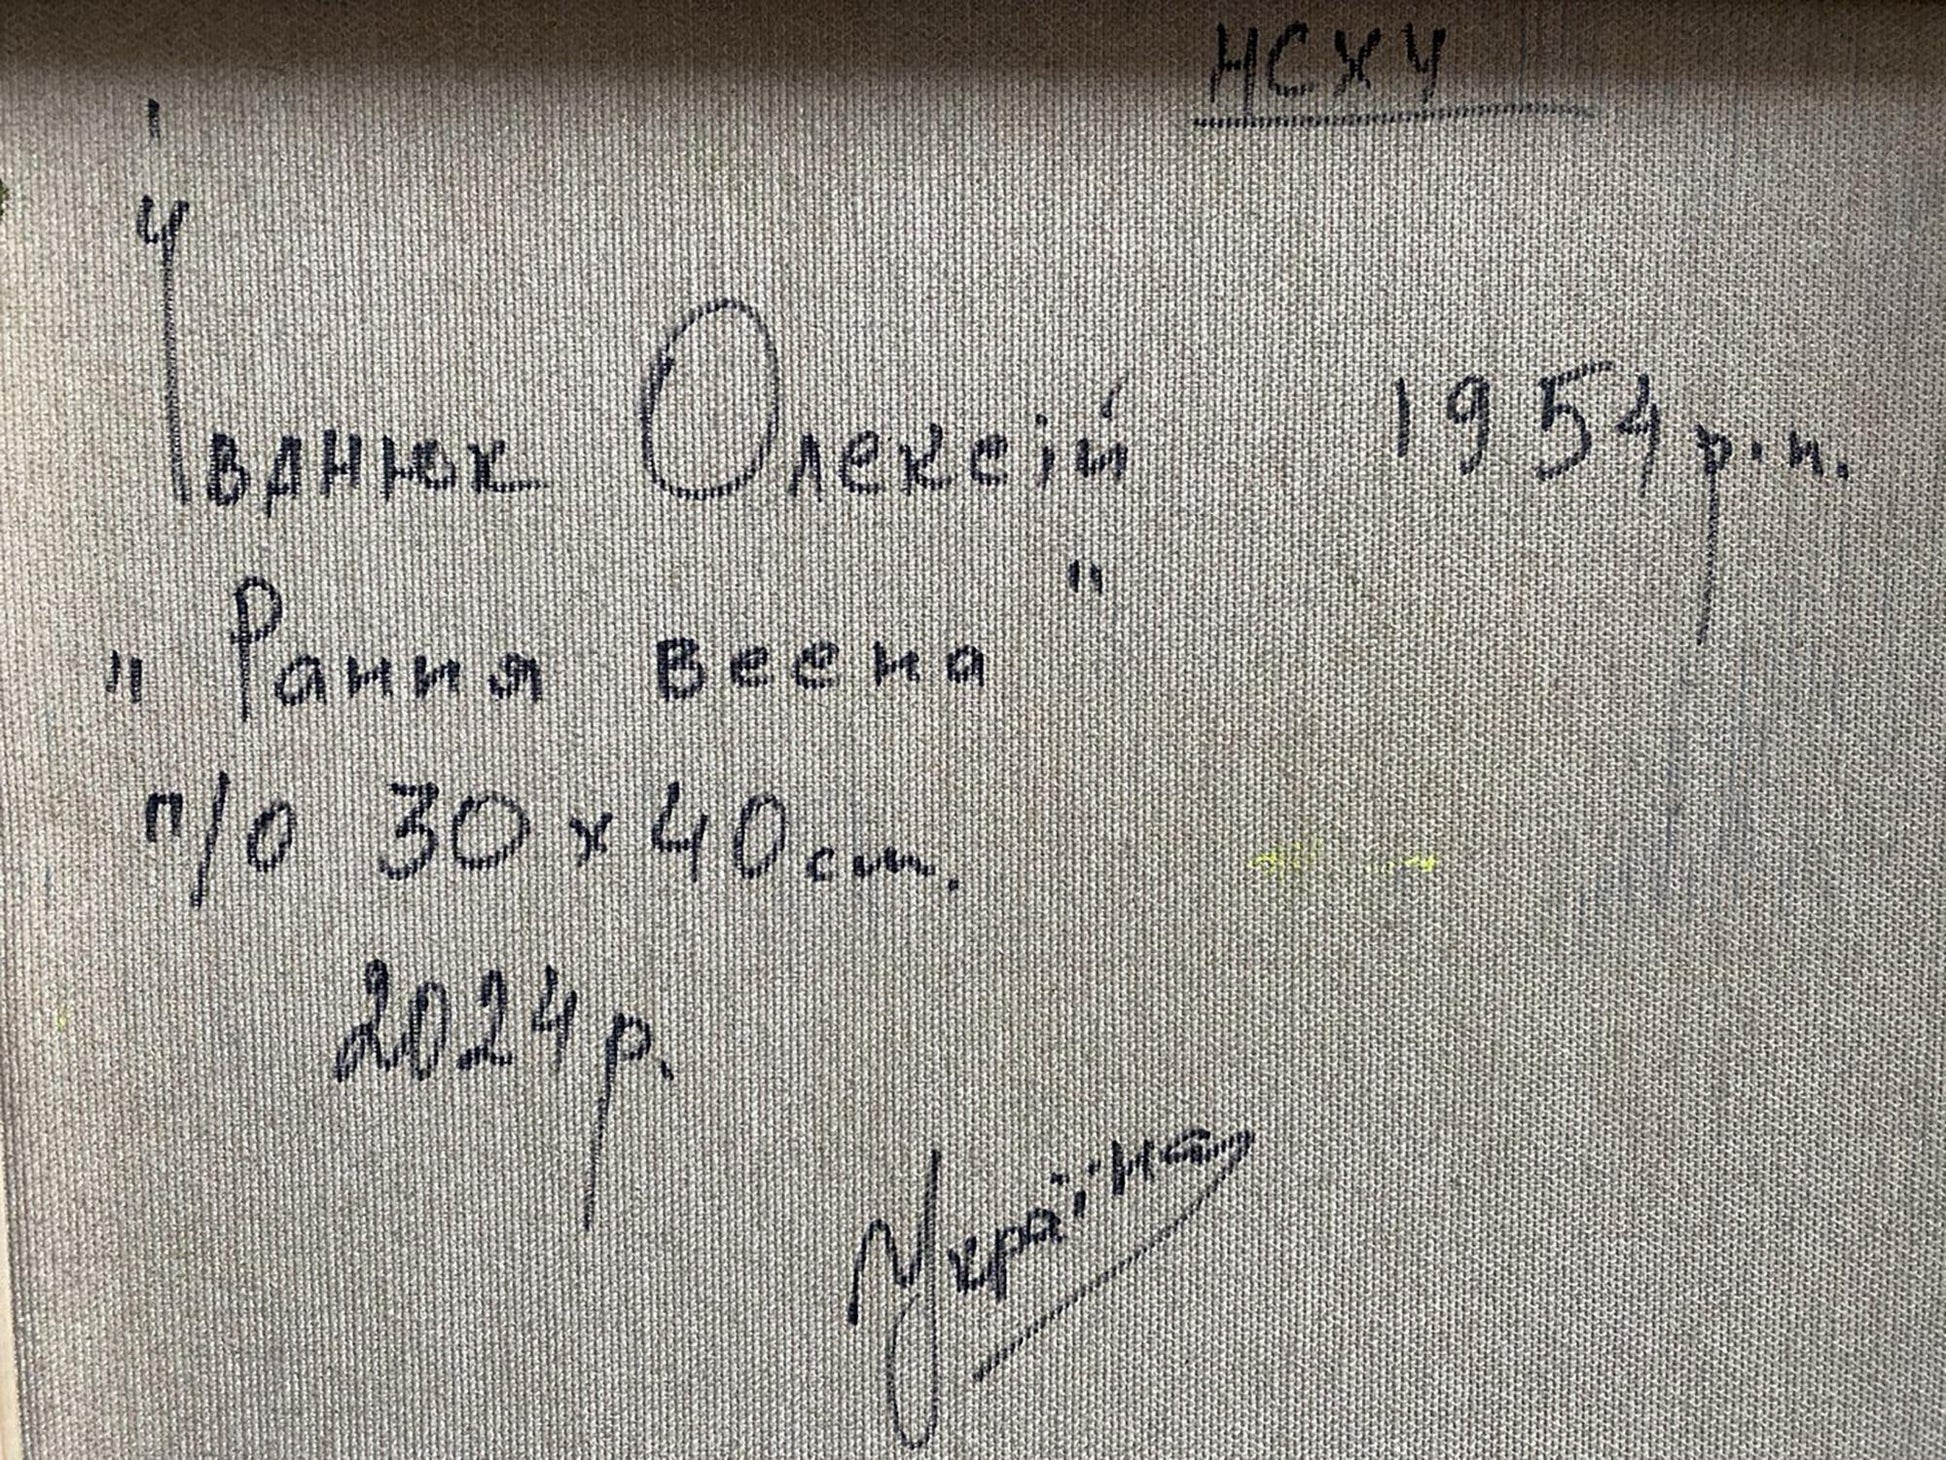 НСХУ
Іванюк Олексій 1954 р.н.
"Рання весна"
п/о 30 х 40 см.
2024 р.
Україна